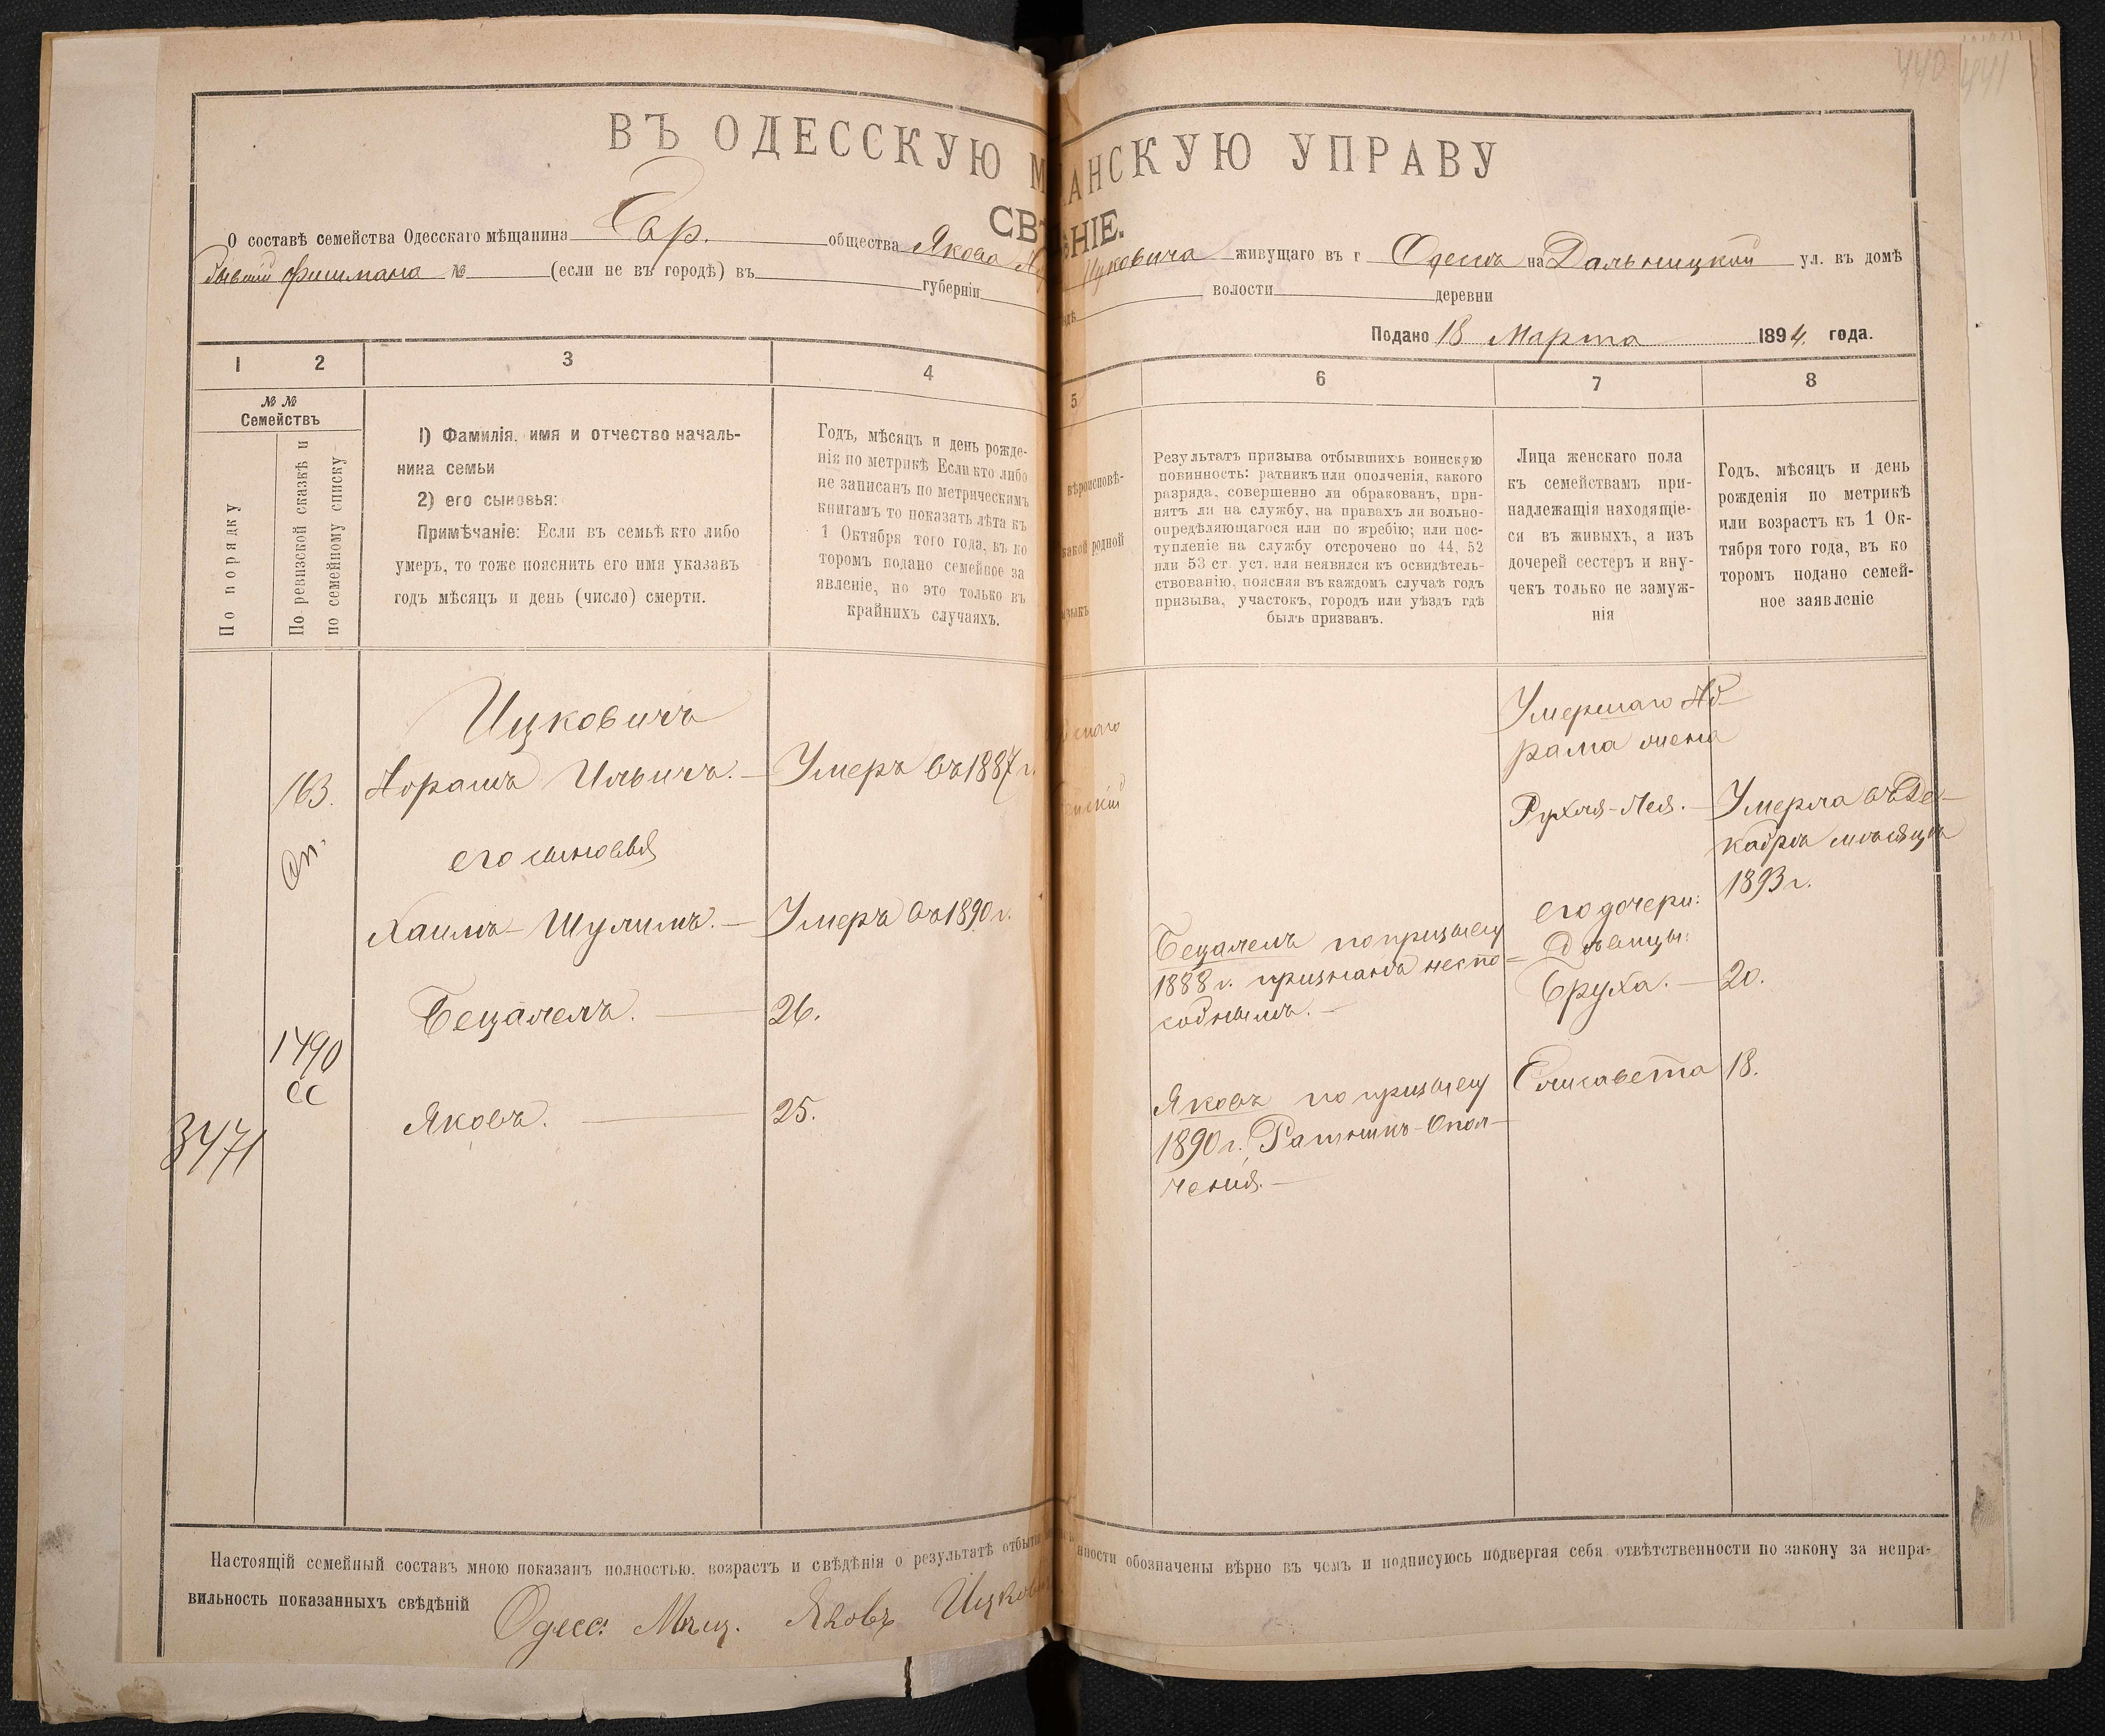 440 441
ВЪ ОДЕССКУЮ М АНСКУЮ УПРАВУ
СВѢ НІЕ.
О составѣ семейства Одесскаго мѣщанина Евр. общества Якова Ицковича живущаго въ г Одессѣ на Дальницкой ул. въ домѣ
бывшій Фишмана № (если не въ городѣ) въ губерніи волости деревни
Подано 18 Марта 1894 года.
1 2 3 4 5 6 7 8
№ №
Семействъ
По порядку
По ревизской сказкѣ и
по семейному списку
1) Фамилія, имя и отчество началь-
ника семьи
2) его сыновья:
Примѣчаніе: Если въ семьѣ кто либо
умеръ, то тоже пояснить его имя указавъ
годъ мѣсяцъ и день (число) смерти.
Годъ, мѣсяцъ и день рожде-
нія по метрикѣ Если кто либо
не записанъ по метрическимъ
книгамъ то показать лѣта къ
1 Октября того года, въ ко
торомъ подано семейное за
явленіе, но это только въ
крайнихъ случаяхъ.
вѣроисповѣ-
какой родной
языкъ
Результатъ призыва отбывшихъ воинскую
повинность: ратникъ или ополченія, какого
разряда, совершенно ли обракованъ, при-
нятъ ли на службу, на правахъ ли вольно-
опредѣляющагося или по жребію; или пос-
тупленіе на службу отсрочено по 44, 52
или 53 ст. уст. или неявился къ освидѣтель-
ствованію, поясняя въ каждомъ случаѣ годъ
призыва, участокъ, городъ или уѣздъ гдѣ
былъ призванъ.
Лица женскаго пола
къ семействамъ при-
надлежащія находящіе-
ся въ живыхъ, а изъ
дочерей сестеръ и вну-
чекъ только не замуж-
нія
Годъ, мѣсяцъ и день
рожденія по метрикѣ
или возрастъ къ 1 Ок-
тября того года, въ ко
торомъ подано семей-
ное заявленіе
Ицковичъ
163. Абрамъ Ильичъ. — Умеръ въ 1887 г.
его сыновья
Хаимъ-Шулимъ. — Умеръ въ 1890 г.
Бецалель. — 26.
1490
СС
Яковъ. — 25.
3471
Бецалель по призыву
1888 г. признанъ неспо-
собнымъ. —
Яковъ по призыву
1890 г. Ратникъ-Опол-
ченія. —
Умершаго Аб-
рама жена
Рухля-Лея. — Умерла въ Де-
кабрѣ мѣсяцѣ
1893 г.
его дочери:
Дѣвицы:
Бруха. — 20.
Елисавета 18.
Настоящій семейный составъ мною показанъ полностью, возрастъ и свѣдѣнія о результатѣ отбыт нности обозначены вѣрно въ чемъ и подписуюсь подвергая себя отвѣтственности по закону за непра-
вильность показанныхъ свѣдѣній Одесс. Мѣщ. Яковъ Ицков